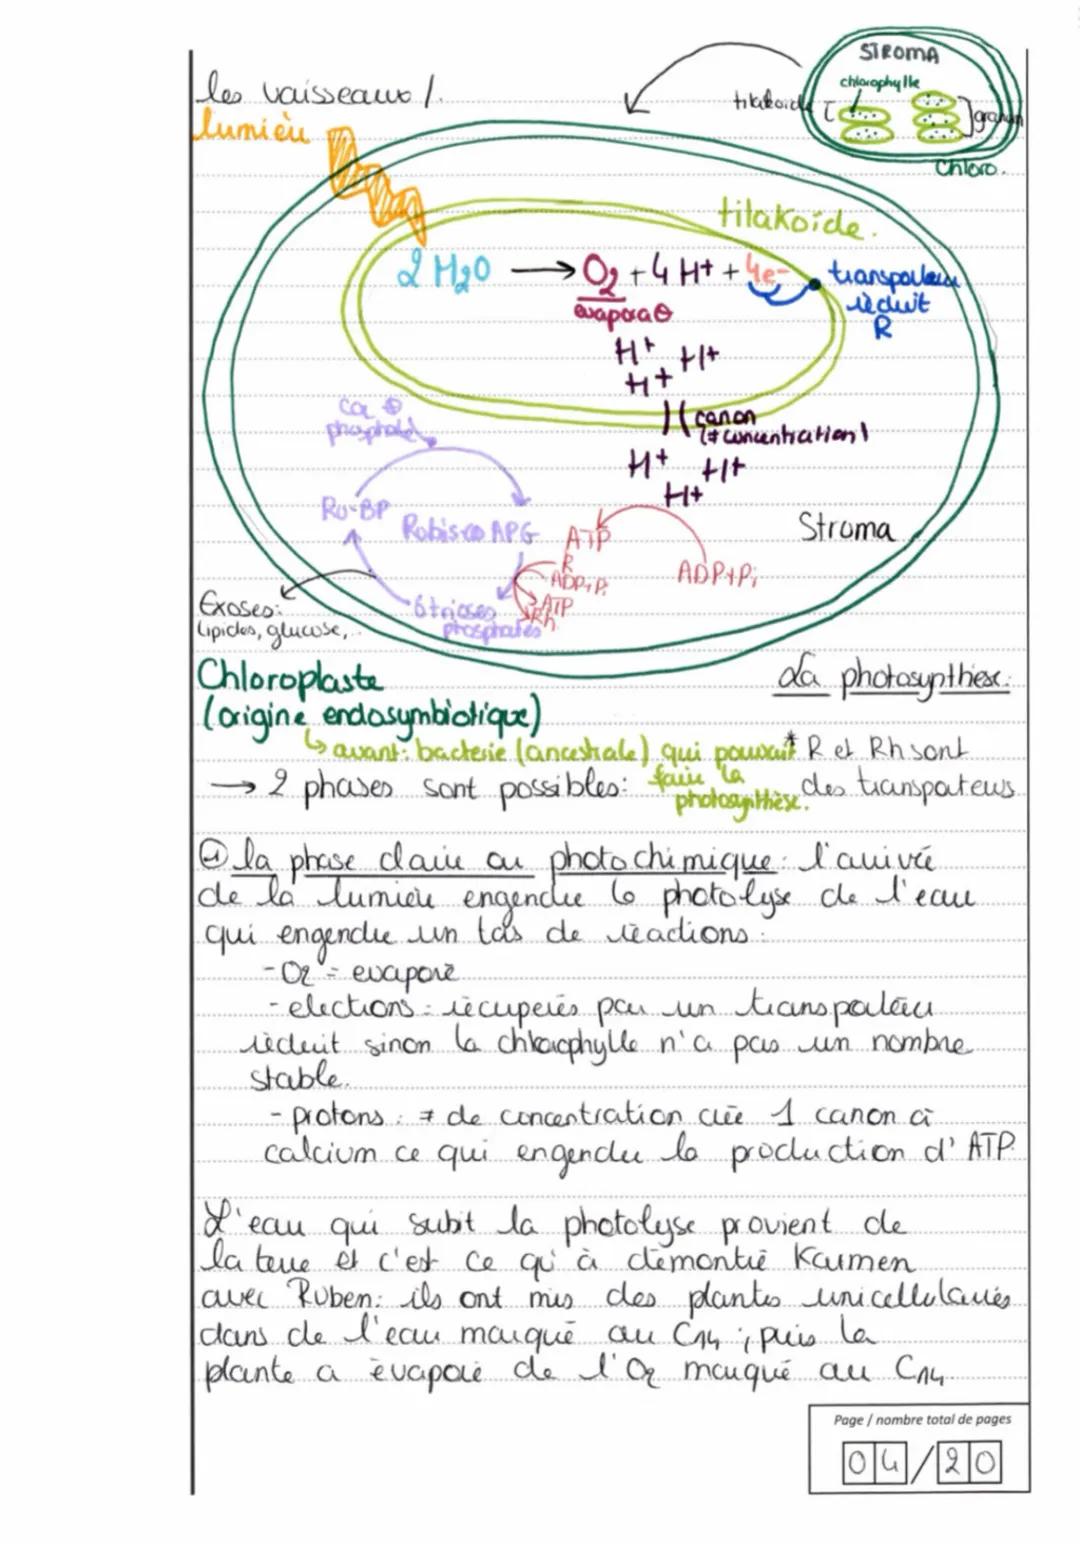 les vaisseaux /.
lumièr
STROMA
chlorophylle
tilakoide
granum
Chloro.
tilakoïde.
2 H2O → O2 + 4 H+ + 4e-
evaporé
transporteur
réduit
R
H+ H+
H+
canon
(≠ concentration)
H+ H+
H+
phosphate
Ru-BP
Rubisco APG
ATP
R
ADP+Pi
ATP
Rh
ADP+Pi
Stroma
6 trioses
phosphates
Exoses:
lipides, glucose,
Chloroplaste
(origine endosymbiotique)
La photosynthèse:
↳ avant: bacterie (ancestrale) qui pouvait
faire la
photosynthèse.
* R et Rh sont
des transporteurs
→ 2 phases sont possibles:
la phase claire ou photochimique: l'arrivée
de la lumière engendre la photolyse de l'eau
qui engendre un tas de réactions:
- O2 = evaporé
- electrons: récuperés par un transporteur
réduit sinon la chlorophylle n'a pas un nombre
stable.
- protons: ≠ de concentration crée 1 canon à
calcium ce qui engendre la production d'ATP.
L'eau qui subit la photolyse provient de
la terre et c'est ce qu'à démontré Karmen
avec Ruben: ils ont mis des plantes unicellulaires
dans de l'eau marqué au C14; puis la
plante a évaporé de l'O2 marqué au C14.
Page / nombre total de pages
04/20